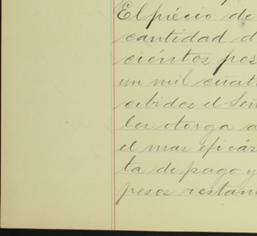 El précio de
cantidad d
ciéntos pes
un mil cuat
cibidos el Señ
les otorga a
el mas eficáz
ta de pago y
pesos restan